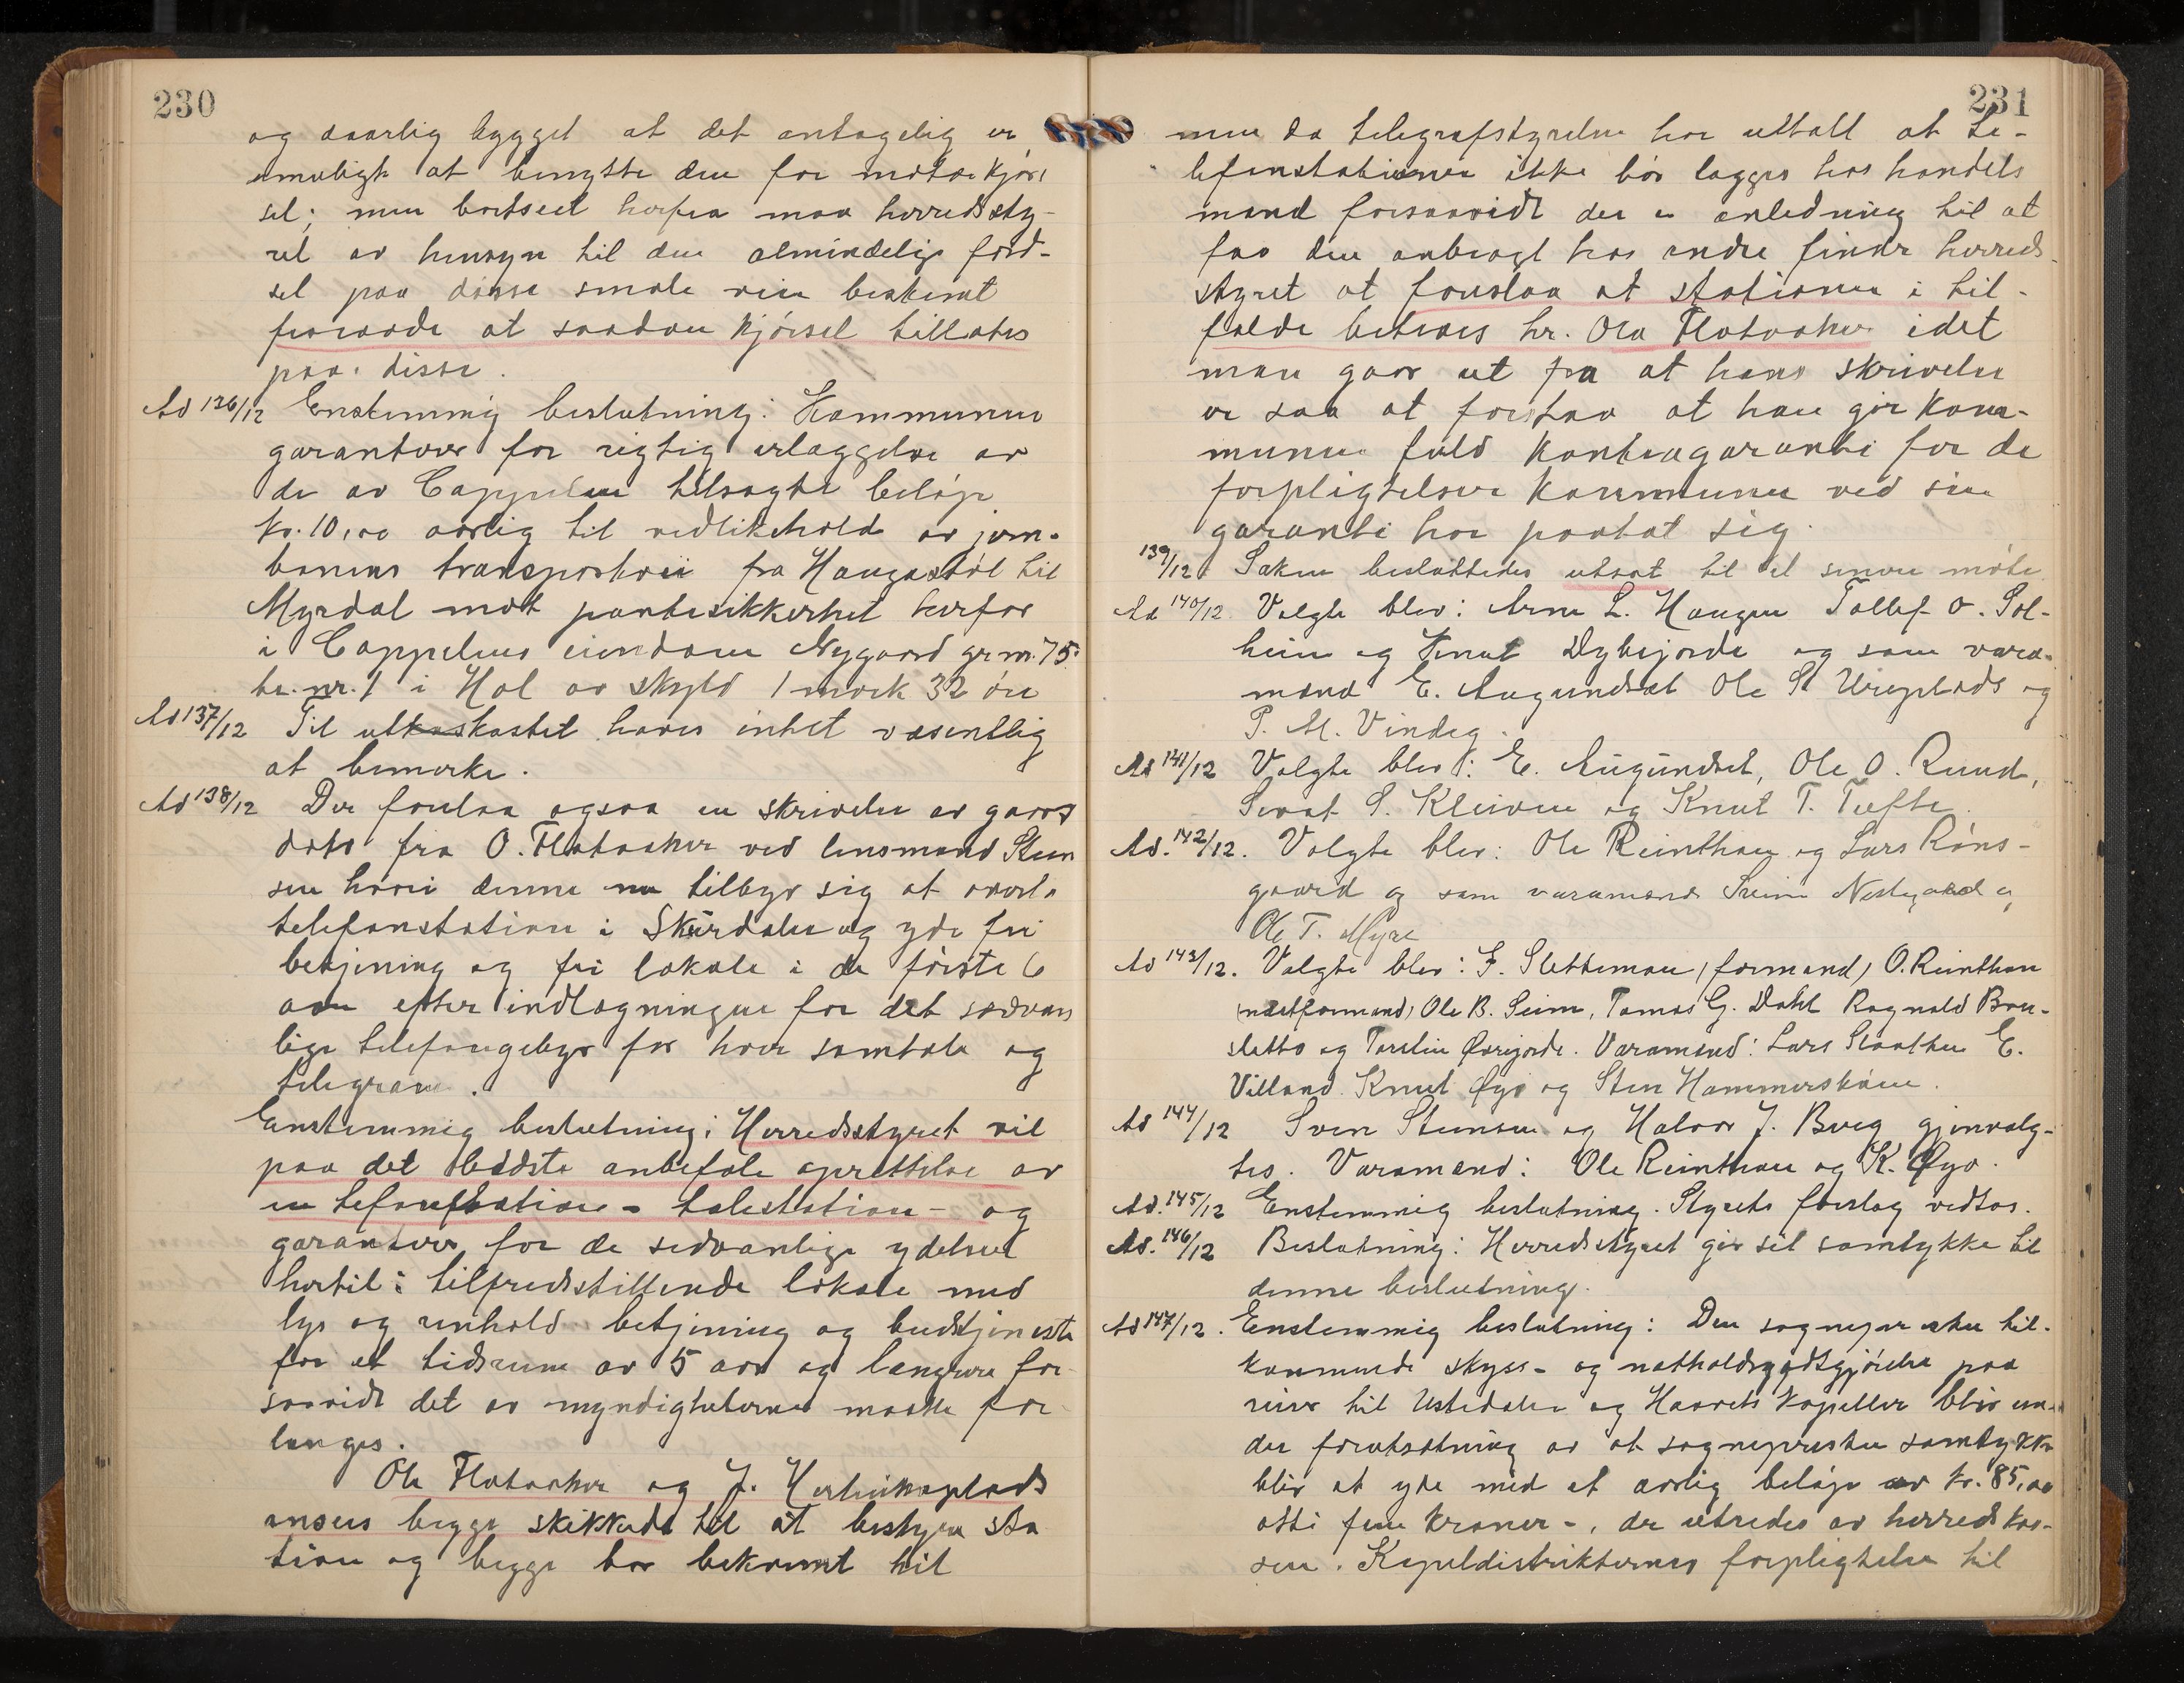 230
og daarlig bygget at det antagelig er
umuligt at benytte den for motorkjør-
sel; men bortseet herfra maa herredssty-
ret av hensyn til den almindelige færd-
sel paa disse smale veie bestemt
fraraade at saadan kjørsel tillates
paa disse.
Ad 136/12 Enstemmig beslutning: Kommunen
garanterer for rigtig erlæggelse av
de av Cappelen tilsagte beløp
kr. 10,00 aarlig til vedlikehold av jern-
banens transportvei fra Haugastøl til
Myrdal mot pantesikkerhet herfor
i Cappelens eiendom Nygaard gr. nr. 75
br. nr. 1 i Hol av skyld 1 mark 32 øre
Ad 137/12 Til utkastet haves intet væsentlig
at bemerke.
Ad 138/12 Der forelaa ogsaa en skrivelse av gaars
dato fra O. Flataaker ved lensmand Steen
sen hvori denne nu tilbyr sig at overta
telefonstation i Skurdalen og yde fri
betjening og fri lokale i de første 6
aar efter indlægningen for det sedvan
lige telefongebyr for hver samtale og
telegram.
Enstemmig beslutning: Herredsstyret vil
paa det bedste anbefale oprettelse av
en telefonstation - talestation - og
garanterer for de sedvanlige ydelser
hertil: tilfredsstillende lokale med
lys og renhold betjening og budtjeneste
for et tidsrum av 5 aar og længere for
saavidt det av myndigheterne maatte for
langes.
Ole Flataaker og J. Herleiksplads
ansees begge skikkede til at bestyre sta
tion og begge har bekvemt hit
231
men da telegrafstyrelsen har uttalt at te-
lefonstationer ikke bør lægges hos handels
mand forsaavidt der er anledning til at
faa den anbragt hos andre finder herreds
styret at foreslaa at stationen i til-
fælde betroes hr. Ola Flataaker idet
man gaar ut fra at hans skrivelse
er saa at forstaa at han gir kom-
munen fuld kontragaranti for de
forpligtelser kommunen ved sin
garanti har paatat sig.
139/12 Saken besluttedes utsat til et senere møte
Ad 140/12 Valgte blev: Arne L. Haugen Tollef O. Sol-
heim og Knut Dybsjorde og som vara-
mænd E. Augundset Ole S. Ureplads og
P. M. Vindeg.
Ad 141/12 Valgte blev: E. Augundset, Ole O. Ruud,
Sevat S. Kleiven og Knut T. Tufte.
Ad. 142/12. Valgte blev: Ole Reinthon og Lars Røns-
gaard og som varamænd Svein Nestegaard og
Ole T. Myre
Ad 143/12. Valgte blev: F. Slettemoen (formand) O. Reinthon
(næstformand) Ole B. Seim, Tomas G. Dahl Ragnald Brat-
sletto og Torstein Øvrejorde. Varamænd: Lars Slaathen E.
Villand Knut Øyo og Sten Hammersbøen.
Ad 144/12 Sven Stensen og Halvor J. Breg gjenvalg-
tes. Varamænd: Ole Reinthon og K. Øyo.
Ad. 145/12 Enstemmig beslutning. Styrets forslag vedtas.
Ad. 146/12 Beslutning: Herredsstyret gir sit samtykke til
denne beslutning.
Ad 147/12. Enstemmig beslutning: Den sognepresten til-
kommende skyss- og natholdsgodtgjørelse paa
reiser til Ustedalen og Haavets kapeller blir un-
der forutsætning av at sognepresten samtykker
blir at yde med et aarlig beløp av kr. 85,00
otti fem kroner -, der utredes av herredskas-
sen. Kapeldistrikternes forpligtelse til